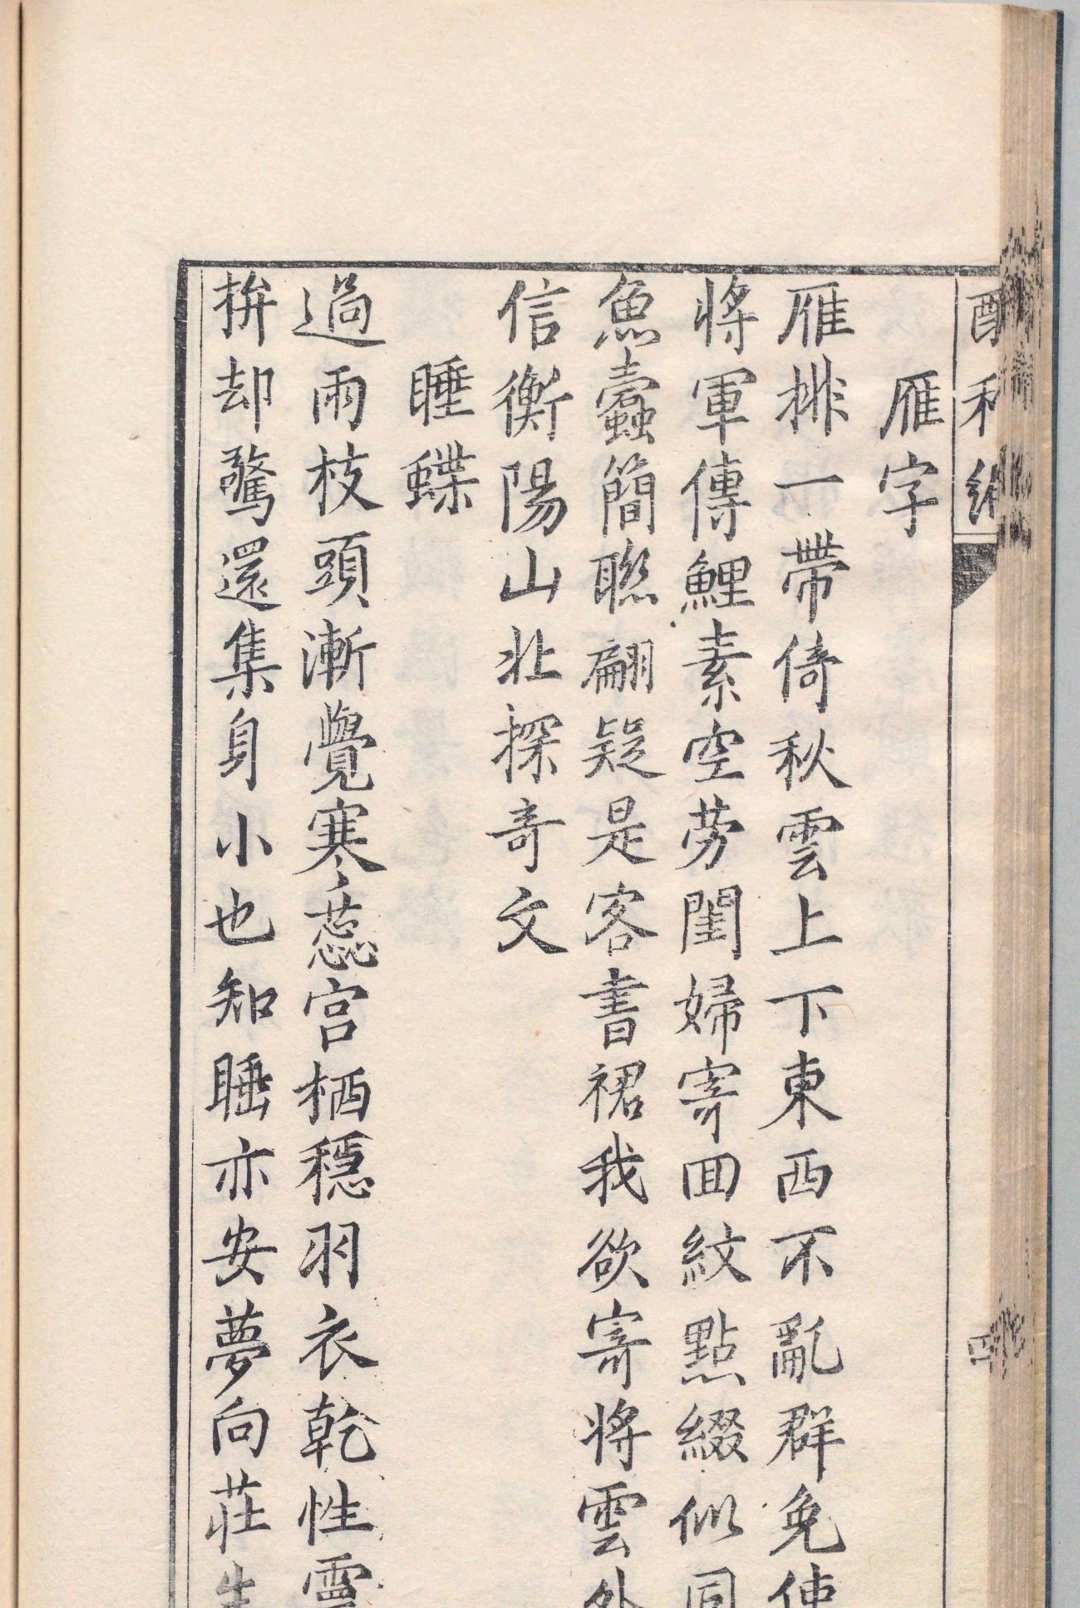 雁字
雁排一帶倚秋雲上下東西不亂群免使
將軍傳鯉素空勞閨婦寄回紋點綴似同
魚蠹簡聯翩疑是客書裙我欲寄將雲外
信衡陽山北探奇文
睡蝶
過雨枝頭漸覺寒蕊宮栖穩羽衣乾性靈
拚却驚還集身小也知睡亦安夢向莊生